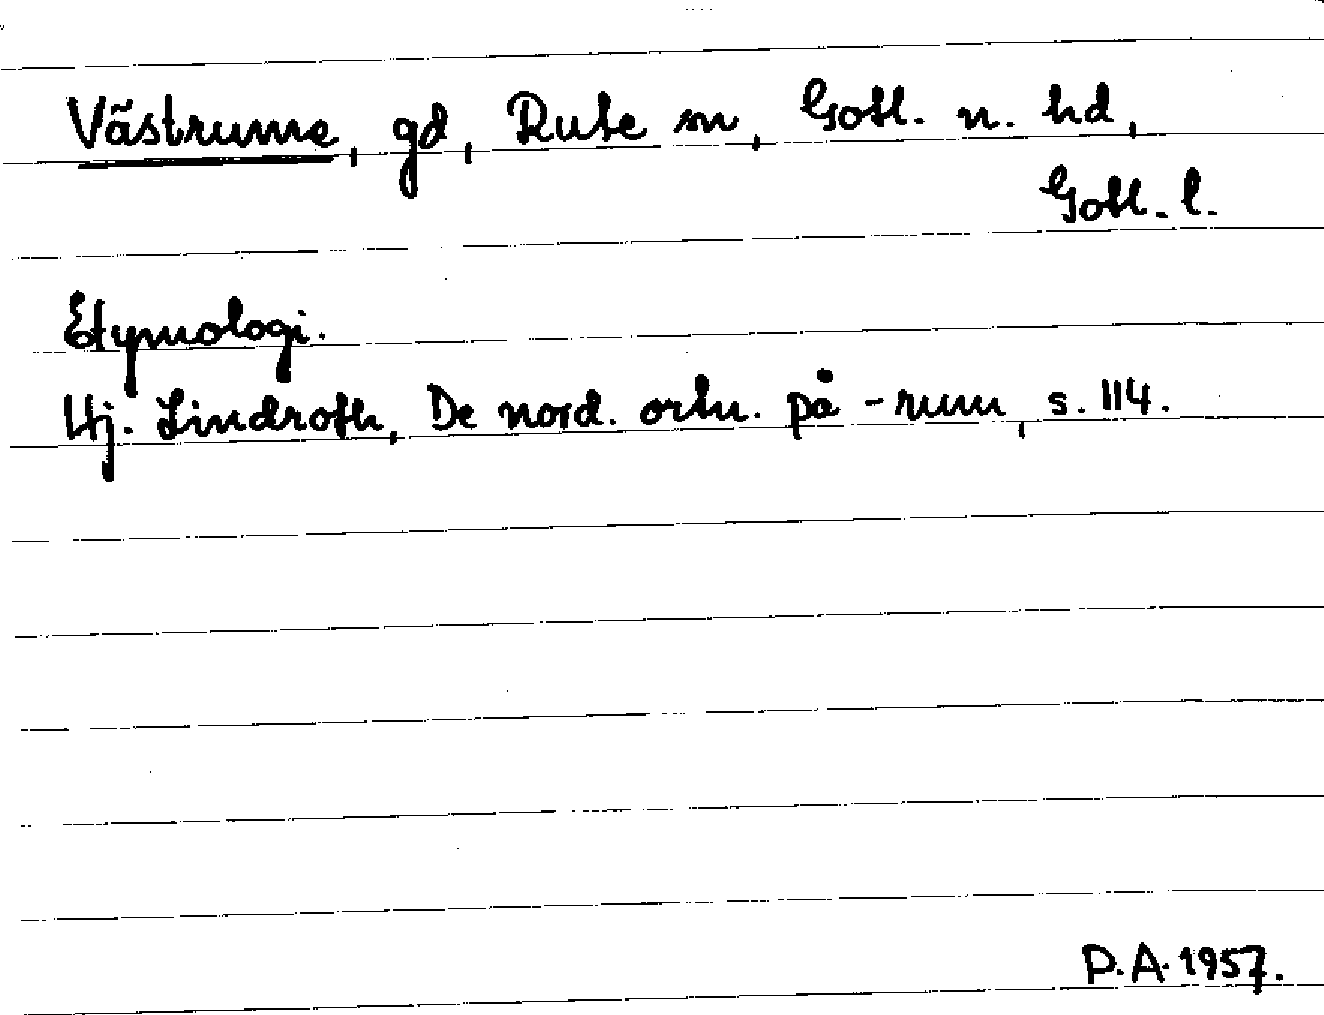 Västrume, gd, Rute sn, Gotl. n. hd,
Gotl. l.
Etymologi.
Hj. Lindroth, De nord. ortn. på -rum, s. 114.
P.A. 1957.